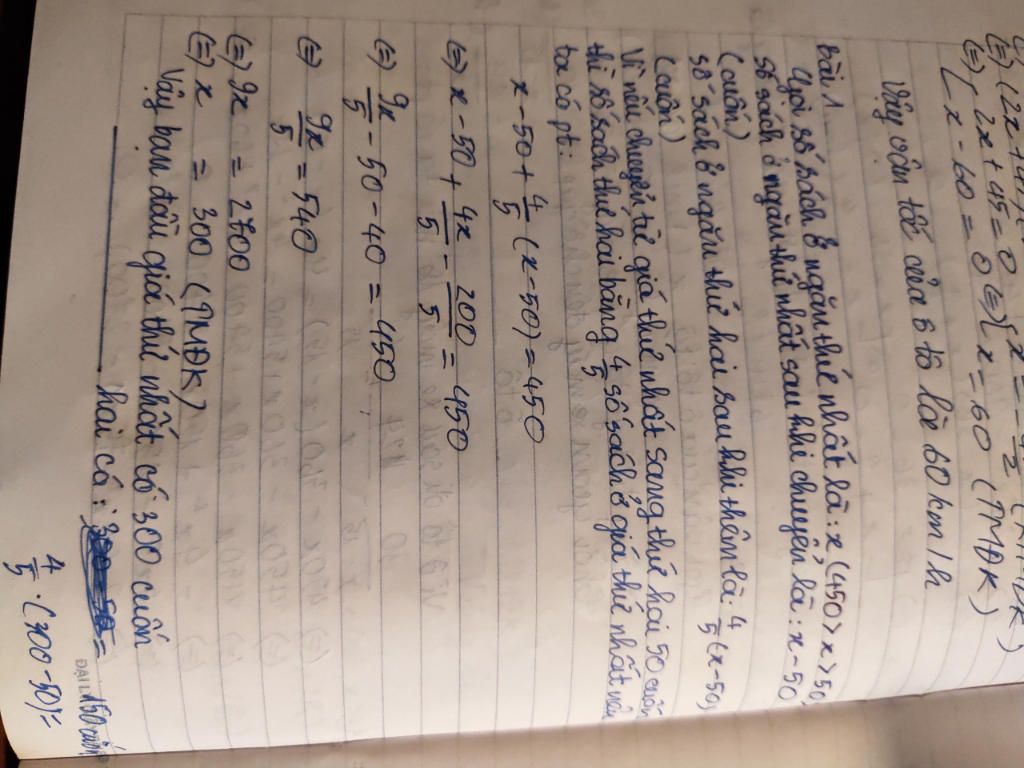 (=) (2x + 45 = 0
(=) [ 2x + 45 = 0 (=) [ x = - 
[ x - 60 = 0 [ x = 60 (TMĐK)
Vậy vận tốc của ô tô là 60 km/h
Bài 1.
Gọi số sách ở ngăn thứ nhất là: x (450 > x > 50)
số sách ở ngăn thứ nhất sau khi chuyển là: x - 50
(cuốn)
số sách ở ngăn thứ hai sau khi thêm là: 4/5 (x - 50)
(cuốn)
Vì nếu chuyển từ giá thứ nhất sang thứ hai 50 cuốn
thì số sách thứ hai bằng 4/5 số sách ở giá thứ nhất nên
ta có pt:
x - 50 + 4/5 (x - 50) = 450
(=) x - 50 + 4x/5 - 200/5 = 450
(=) 9x/5 - 50 - 40 = 450
(=) 9x/5 = 540
(=) 9x = 2700
(=) x = 300 (TMĐK)
Vậy ban đầu giá thứ nhất có 300 cuốn
hai có:
4/5 . (300 - 50) =